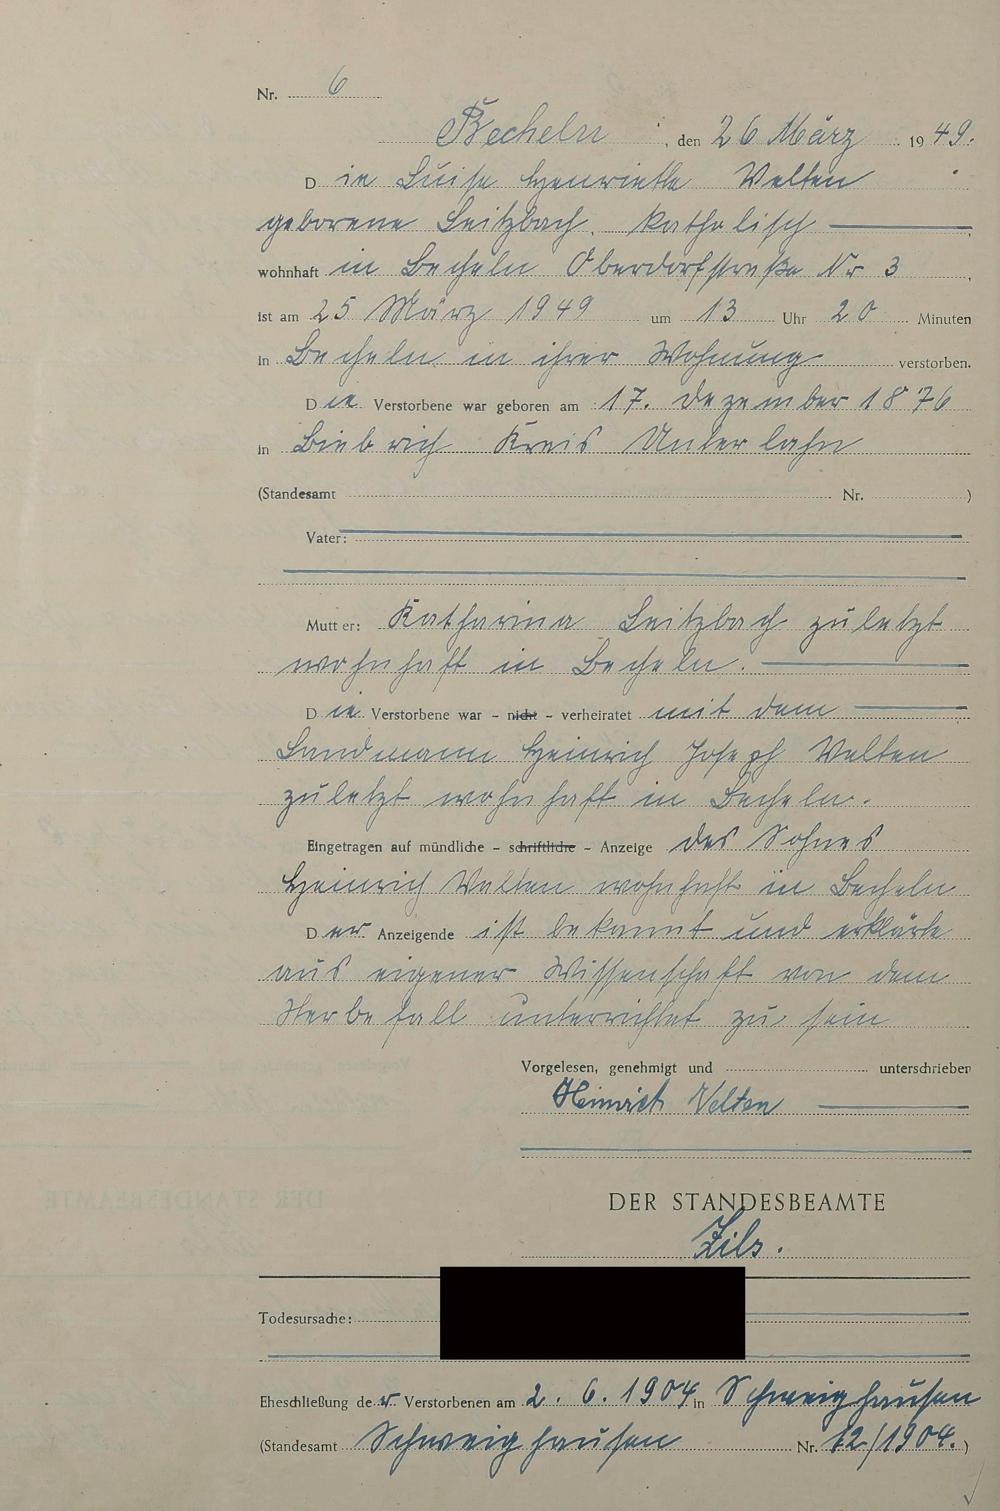 Nr. 6
Becheln, den 26 März 1949.
Die Luise Henriette Velten
geborene Leitzbach, katholisch
wohnhaft in Becheln Oberdorfstraße Nr 3,
ist am 25 März 1949 um 13 Uhr 20 Minuten
in Becheln in ihrer Wohnung verstorben.
Die Verstorbene war geboren am 17. Dezember 1876
in Biebrich Kreis Unterlahn
(Standesamt Nr. )
Vater:
Mutter: Katharina Leitzbach zuletzt
wohnhaft in Becheln.
Die Verstorbene war – nicht – verheiratet mit dem
Landmann Heinrich Joseph Velten
zuletzt wohnhaft in Becheln.
Eingetragen auf mündliche – schriftliche – Anzeige des Sohnes
Heinrich Velten wohnhaft in Becheln
Der Anzeigende ist bekannt und erklärte
aus eigener Wissenschaft von dem
Sterbefall unterrichtet zu sein
Vorgelesen, genehmigt und unterschrieben
Heinrich Velten
DER STANDESBEAMTE
Zils.
Todesursache:
Eheschließung der Verstorbenen am 2. 6. 1904 in Schweighausen
(Standesamt Schweighausen Nr. 12/1904.)